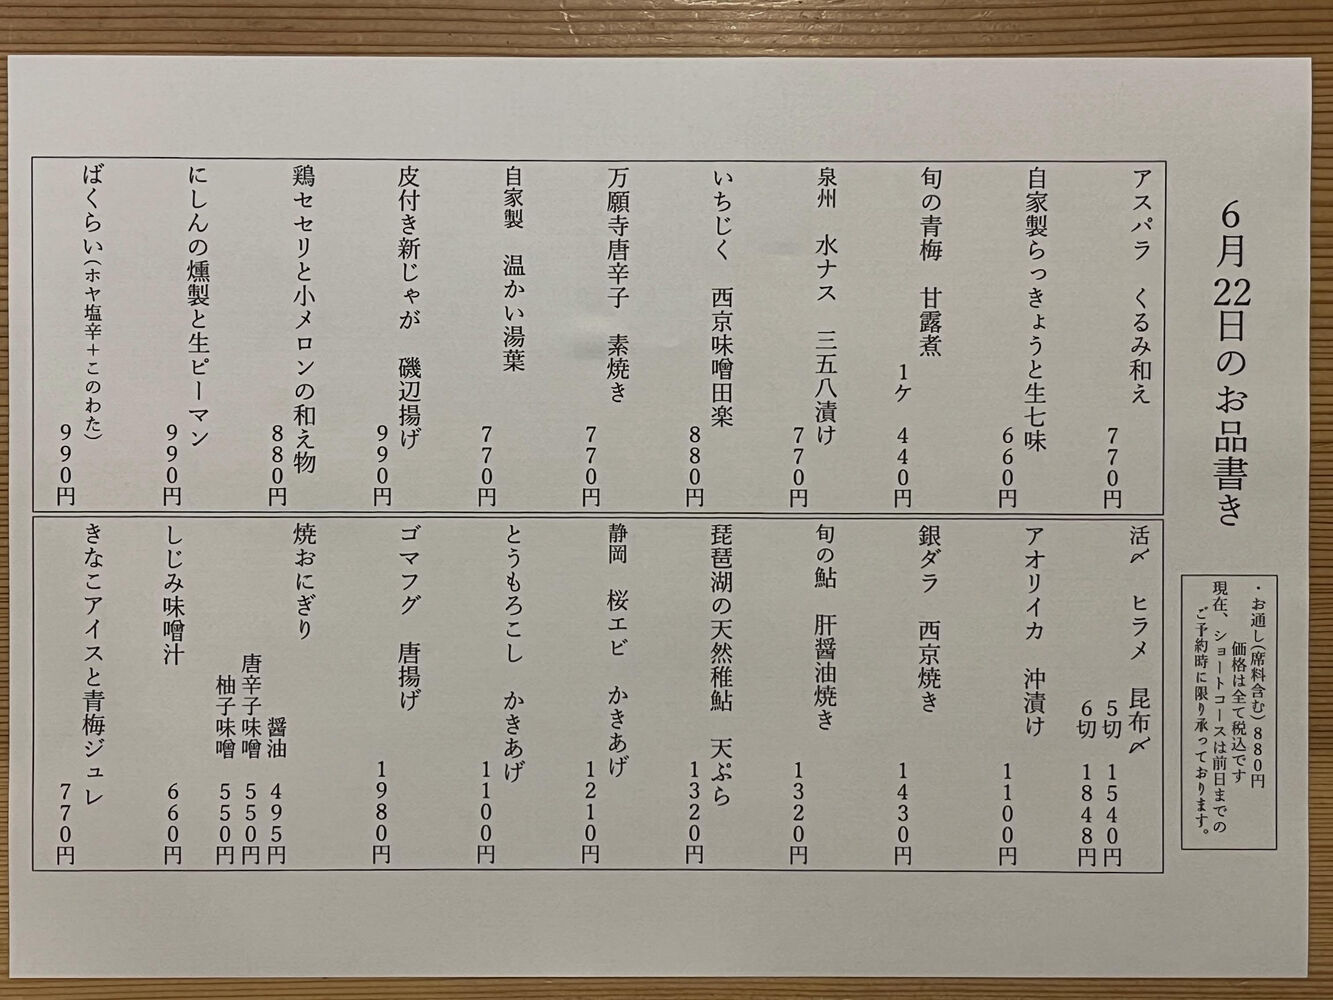 6月22日のお品書き
・お通し(席料含む)880円
価格は全て税込です
現在、ショートコースは前日までの
ご予約時に限り承っております。
アスパラ　くるみ和え
770円
自家製らっきょうと生七味
660円
旬の青梅　甘露煮
1ケ　440円
泉州　水ナス　三五八漬け
770円
いちじく　西京味噌田楽
880円
万願寺唐辛子　素焼き
770円
自家製　温かい湯葉
770円
皮付き新じゃが　磯辺揚げ
990円
鶏セセリと小メロンの和え物
880円
にしんの燻製と生ピーマン
990円
ばくらい(ホヤ塩辛+このわた)
990円
活〆　ヒラメ　昆布〆
5切　1540円
6切　1848円
アオリイカ　沖漬け
1100円
銀ダラ　西京焼き
1430円
旬の鮎　肝醤油焼き
1320円
琵琶湖の天然稚鮎　天ぷら
1320円
静岡　桜エビ　かきあげ
1210円
とうもろこし　かきあげ
1100円
ゴマフグ　唐揚げ
1980円
焼おにぎり
醤油　495円
唐辛子味噌　550円
柚子味噌　550円
しじみ味噌汁
660円
きなこアイスと青梅ジュレ
770円